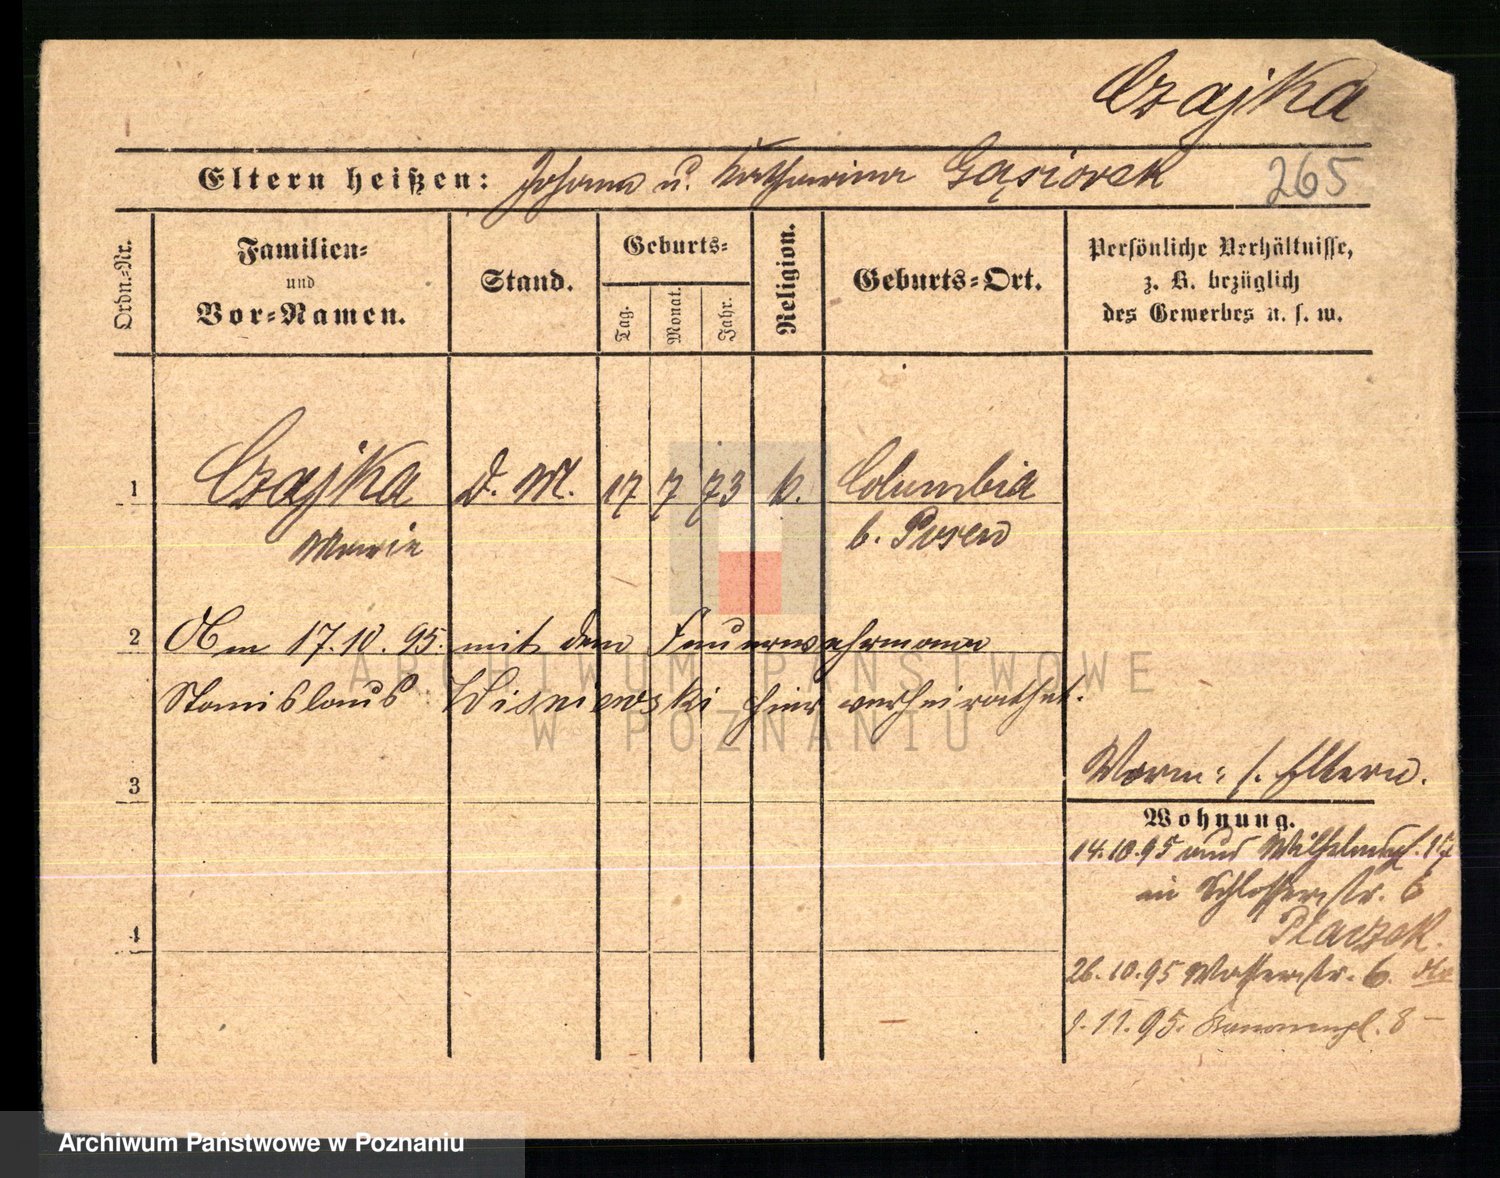 Czajka
Eltern heißen: Johann u. Katharina Gąsiorek
265
Ordn.-Nr.
Familien- und Vor-Namen.
Stand.
Geburts-
Tag.
Monat.
Jahr.
Religion.
Geburts-Ort.
Persönliche Verhältnisse,
z. B. bezüglich
des Gewerbes u. s. w.
1 Czajka D. M. 17 7 73 k. Columbia
Marie b. Posen
2 Am 17.10.95. mit dem Feuerwehrmann
Stanislaus Wisniewski hier verheirathet.
ARCHIWUM PAŃSTWOWE
W POZNANIU
3
Vorm: s. Eltern.
Wohnung.
14.10.95 aus Wilhelmspl. 17
in Schlosserstr. 6
4
26.10.95 Wasserstr. 6.
1.11.95. Kanonenpl. 8 –
Archiwum Państwowe w Poznaniu